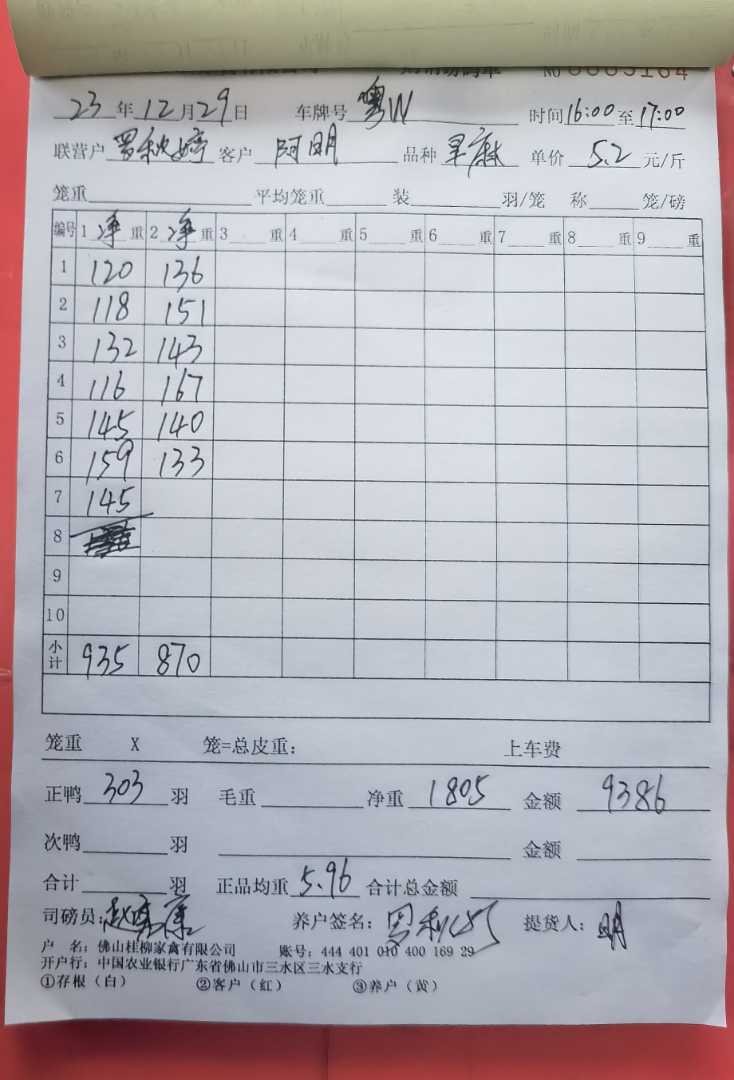 № 0005164
23 年 12 月 29 日 车牌号 粤W 时间 16:00 至 17:00
联营户 罗秋婷 客户 阿明 品种 早麻 单价 5.2 元/斤
笼重 平均笼重 装 羽/笼 称 笼/磅
编号 1 净 重 2 净 重 3 重 4 重 5 重 6 重 7 重 8 重 9 重
1 120 136
2 118 151
3 132 143
4 116 167
5 145 140
6 159 133
7 145
8
9
10
小计 935 870
笼重 X 笼=总皮重: 上车费
正鸭 303 羽 毛重 净重 1805 金额 9386
次鸭 羽 金额
合计 羽 正品均重 5.96 合计总金额
司磅员: 养户签名: 提货人: 明
户 名: 佛山桂柳家禽有限公司 账号: 444 401 010 400 169 29
开户行: 中国农业银行广东省佛山市三水区三水支行
①存根（白） ②客户（红） ③养户（黄）